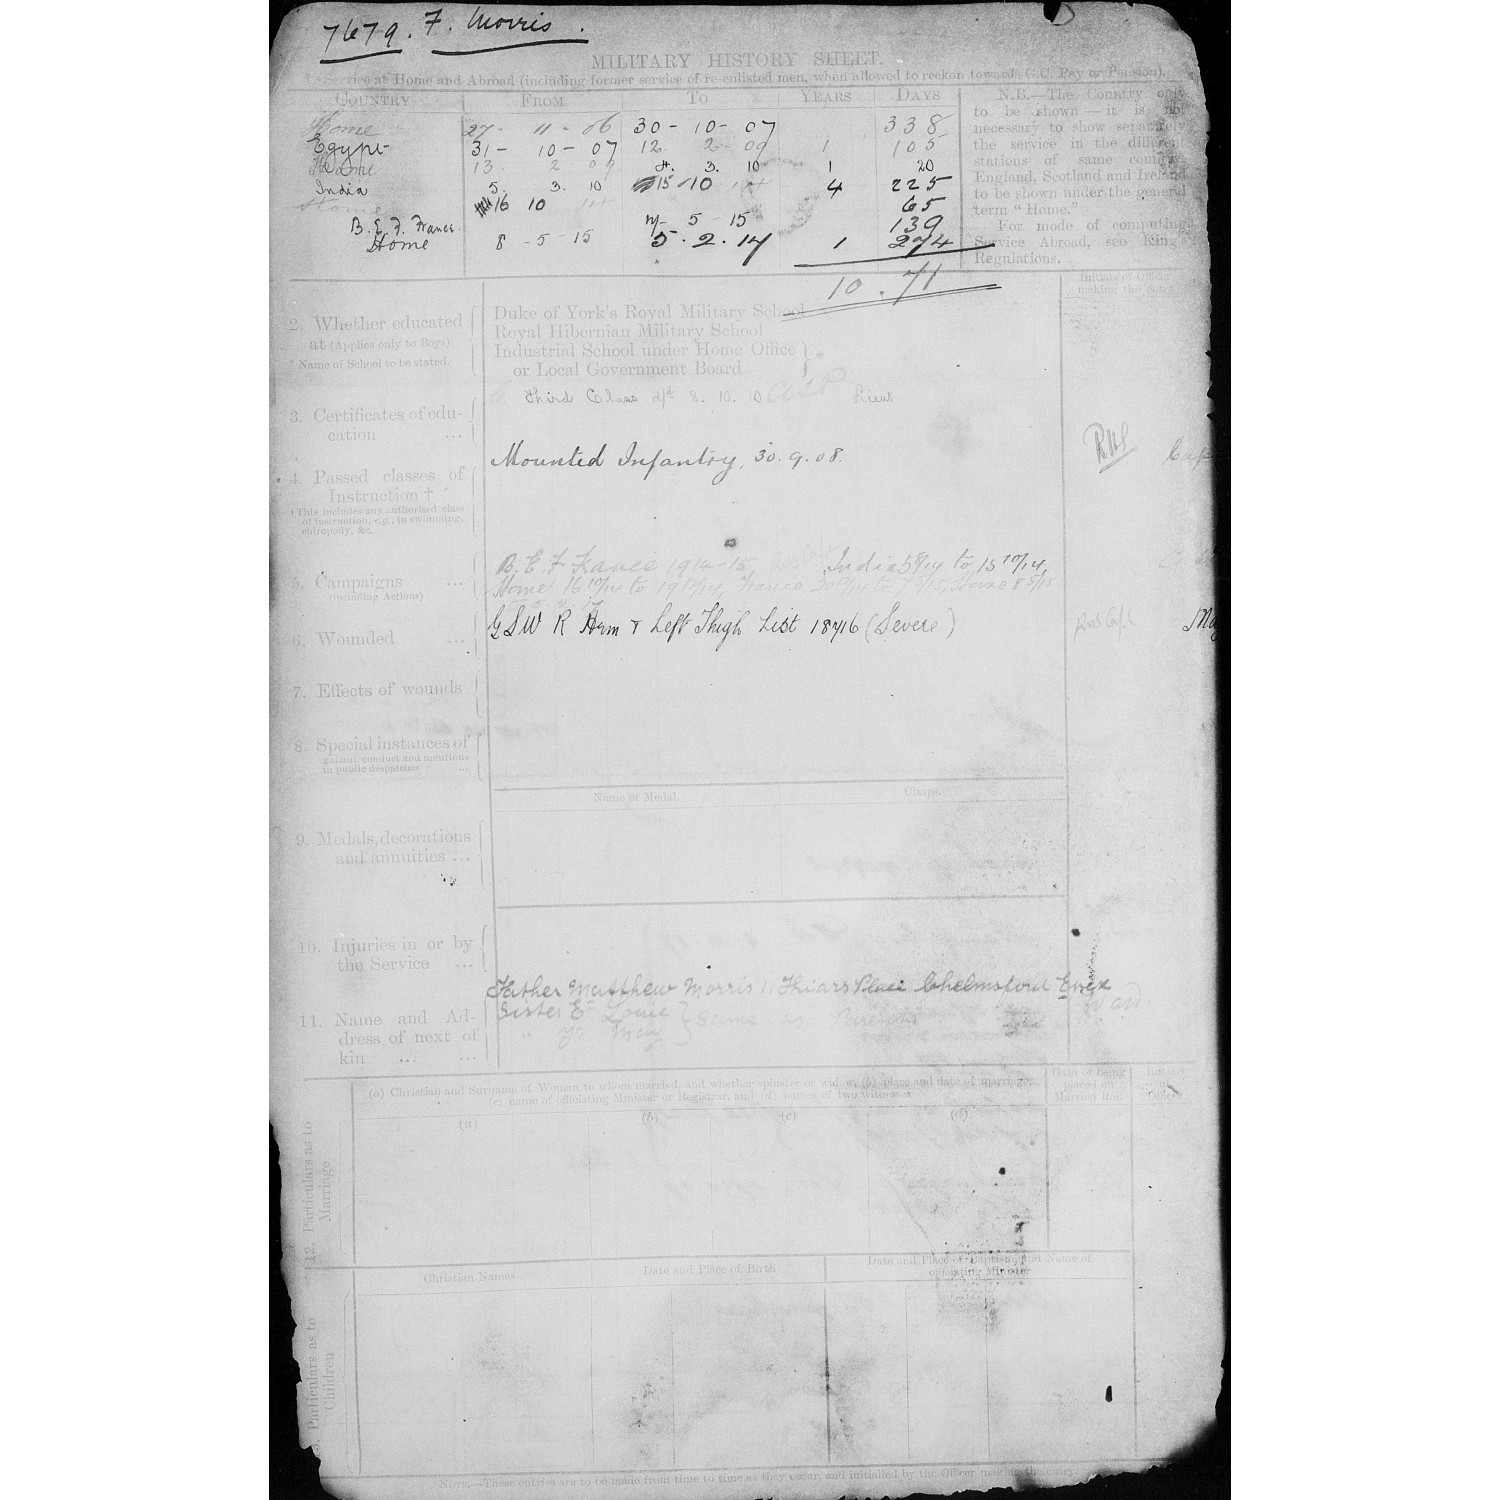 7679. F. Morris.
MILITARY HISTORY SHEET.
1. Service at Home and Abroad (including former service of re-enlisted men, when allowed to reckon towards G.C. Pay or Pension).
COUNTRY FROM TO YEARS DAYS
Home 27- 11 - 06 30 - 10 - 07 338
Egypt 31 - 10 - 07 12. 2 - 09 1 105
Home 13. 2 09 4. 3. 10 1 20
India 5. 3. 10 15 10 14 4 225
Home 16 10 14 65
B. E. F. France 7- 5 - 15 139
Home 8 - 5 - 15 5. 2. 17 1 274
10 . 71
N.B.—The Country only
to be shown—it is not
necessary to show separately
the service in the different
stations of same country.
England, Scotland and Ireland
to be shown under the general
term "Home."
For mode of computing
Service Abroad, see King's
Regulations.
Initials of Officer
making the entry
2. Whether educated
at (Applies only to Boys)
Name of School to be stated.
Duke of York's Royal Military School
Royal Hibernian Military School
Industrial School under Home Office
or Local Government Board
3. Certificates of edu-
cation ...
Third Class d/d 8. 10. 10 Lieut
4. Passed classes of
Instruction †
† This includes any authorised class
of instruction, e.g., in swimming,
chiropody, &c.
Mounted Infantry, 30. 9. 08.
5. Campaigns ...
(including Actions)
B. E. F France 1914-15 India 5 to 15 10/14,
Home 16 10/14 to 19 12/14, France to Home 8 5/15
6. Wounded ...
G S W R Arm & Left Thigh List (Severe)
7. Effects of wounds
8. Special instances of
gallant conduct and mentions
in public despatches ...
Name of Medal. Clasps.
9. Medals, decorations
and annuities ...
10. Injuries in or by
the Service ...
11. Name and Ad-
dress of next of
kin ... ...
Father Matthew Morris 11 Friars Place Chelmsford Essex
Sister E Louie } same as
" Y. May }
12. Particulars as to
Marriage
(a) Christian and Surname of Woman to whom married, and whether spinster or widow, (b) place and date of marriage,
(c) name of officiating Minister or Registrar, and (d) names of two witnesses
(a) (b) (c) (d)
Date of being
placed on
Married Roll
Particulars as to
Children
Christian Names
Date and Place of Birth
Date and Place of Baptism, and Name of
officiating Minister
NOTE.—These entries are to be made from time to time as they occur, and initialled by the Officer making the entry.